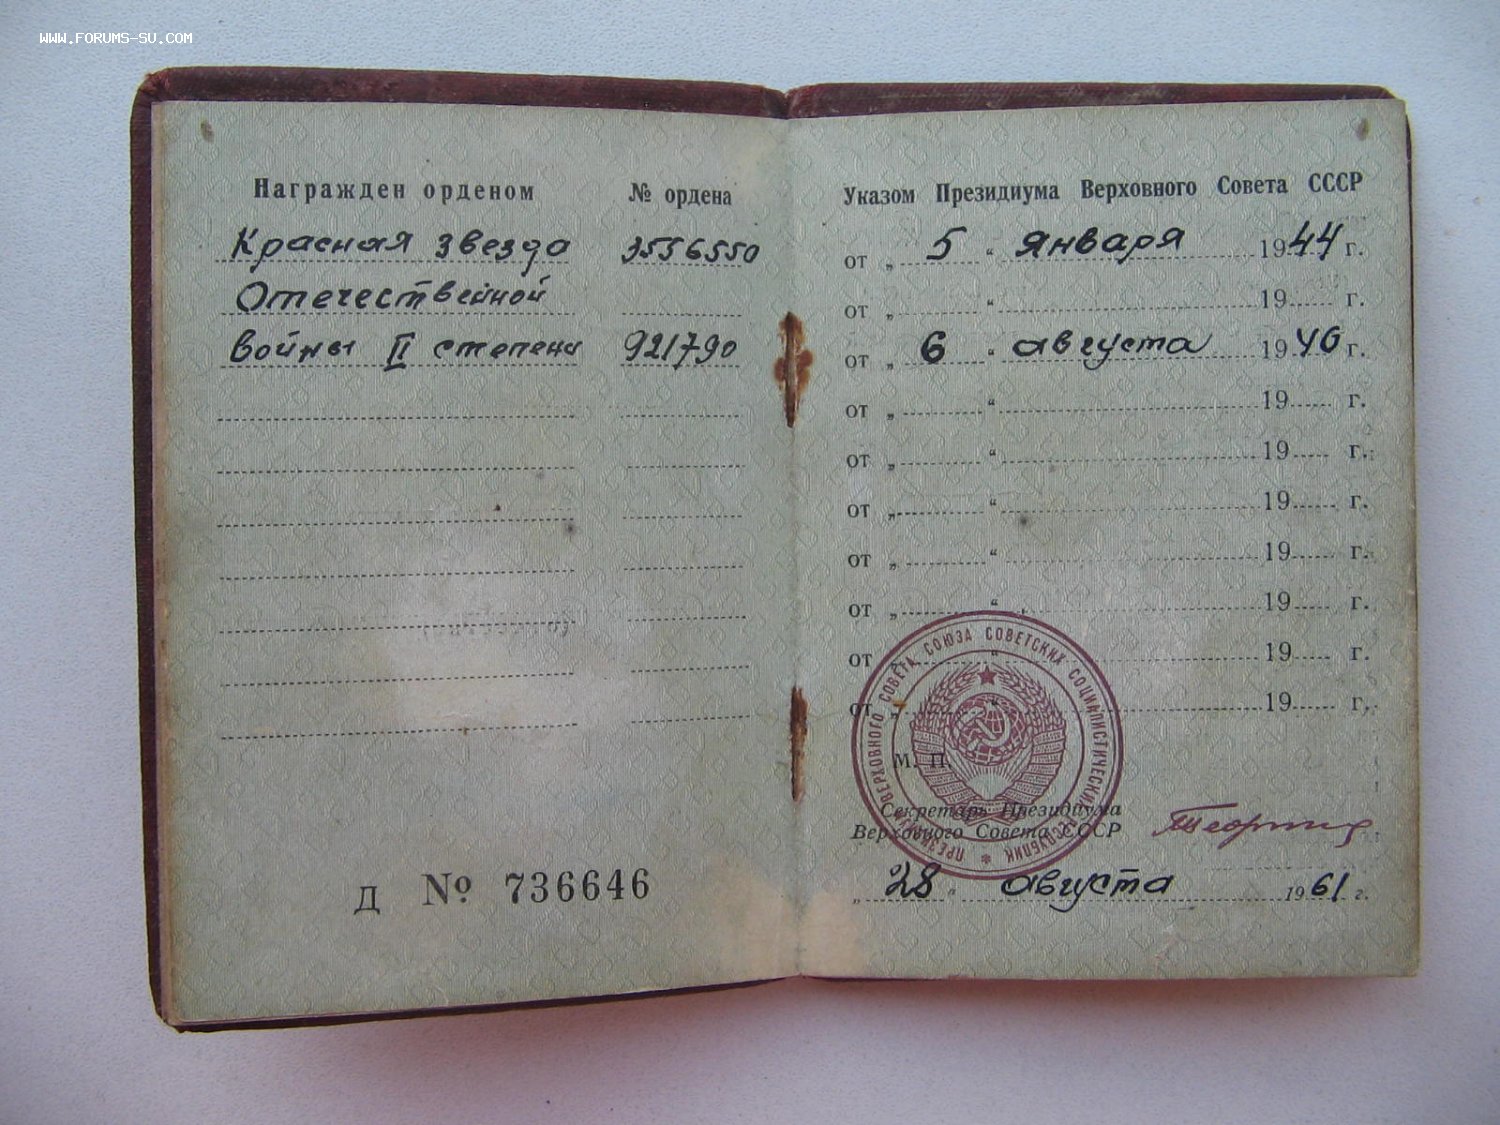 WWW.FORUMS-SU.COM
Награжден орденом № ордена
Красная звезда 3556550
Отечественной
войны II степени 921790
Д № 736646
Указом Президиума Верховного Совета СССР
от „ 5 “ Января 1944 г.
от „ “ 19 г.
от „ 6 “ августа 1946 г.
от „ “ 19 г.
от „ “ 19 г.
от „ “ 19 г.
от „ “ 19 г.
от „ “ 19 г.
от „ “ 19 г.
от „ “ 19 г.
ПРЕЗИДИУМ ВЕРХОВНОГО СОВЕТА СОЮЗА СОВЕТСКИХ СОЦИАЛИСТИЧЕСКИХ РЕСПУБЛИК
М. П.
Секретарь Президиума
Верховного Совета СССР
„ 28 “ августа 1961 г.